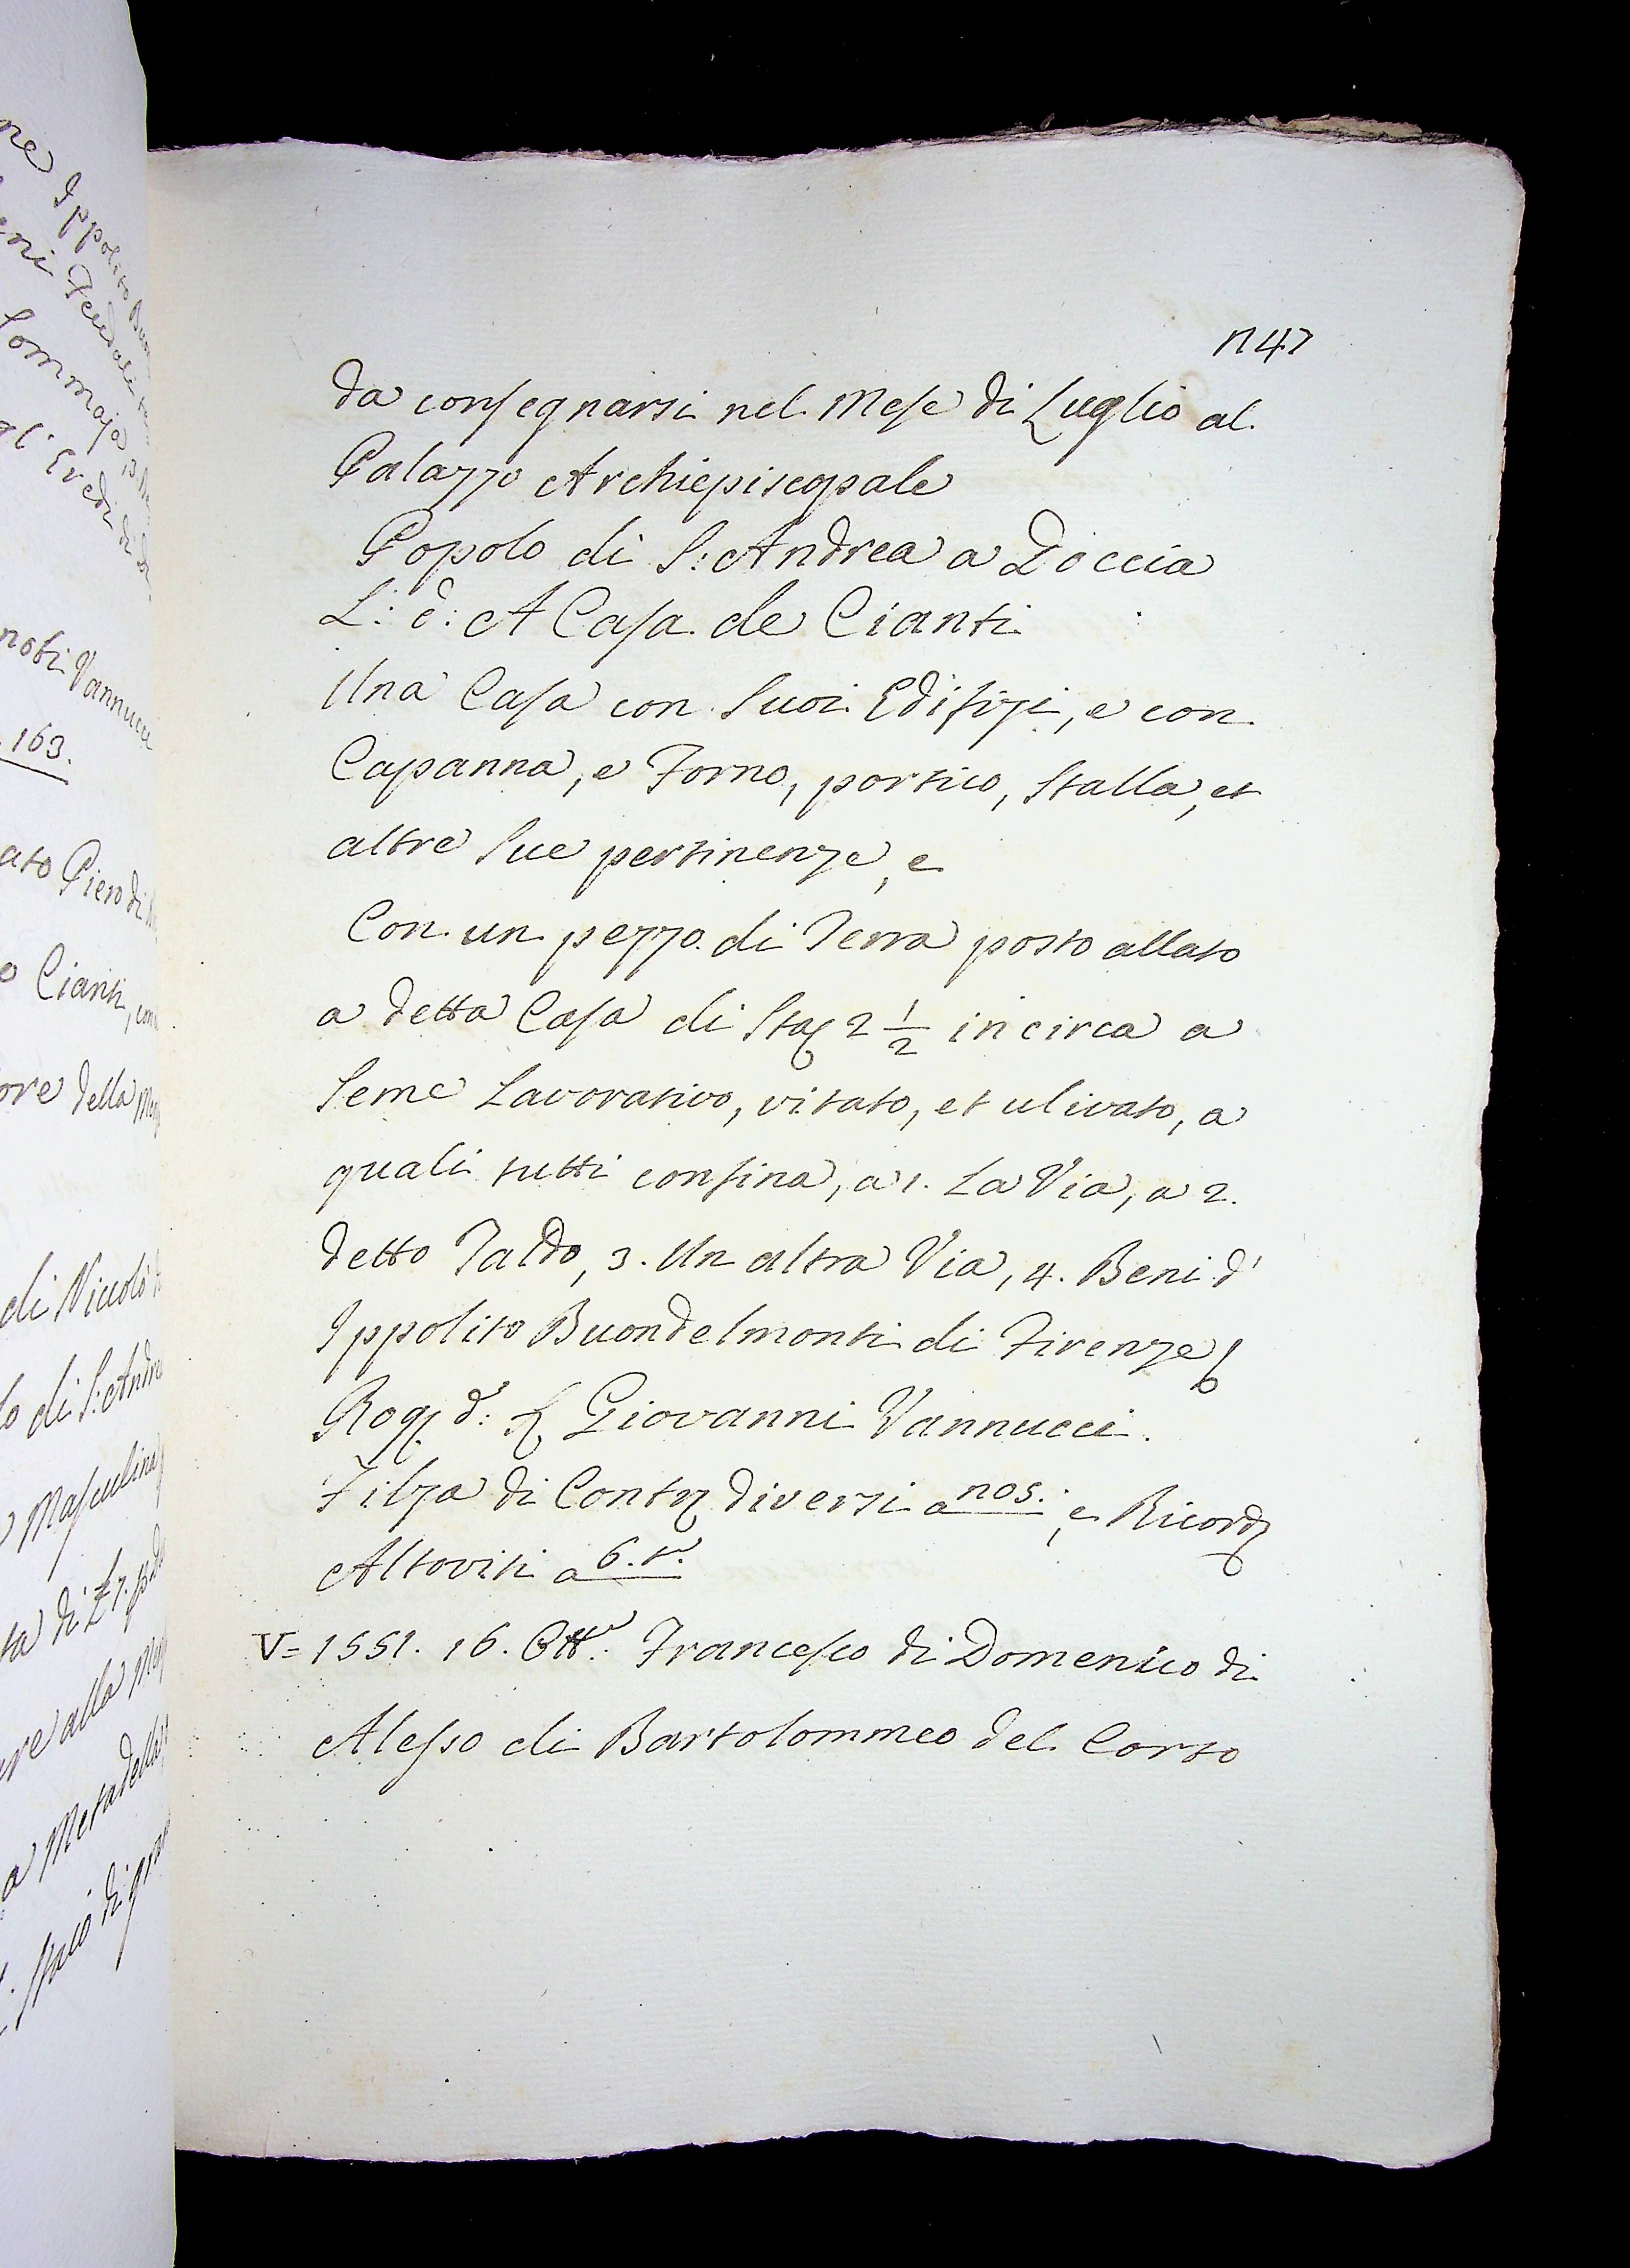 1147
da consegnarsi nel Mese di Luglio al
Palazzo Archiepiscopale
Popolo di S: Andrea a Doccia
L: d: A Casa de Cianti
Una Casa con Suoi Edifizi, e con
Capanna, e Forno, portico, Stalla, et
altre Sue pertinenze, e
Con un pezzo di Terra posto allato
a detta Casa di Sta 2 1/2 in circa a
Seme Lavorativo, vitato, et ulivato, a
quali tutti confina, a 1. La Via, a 2.
detto Taddo, 3. Un altra Via, 4. Beni d'
Ippolito Buondelmonti di Firenze
Rog d: Giovanni Vannucci.
Filza di Contr diversi a nos. e Ricord
Altoviti a 6. t.
V= 1551. 16. Ott. Francesco di Domenico di
Alesso di Bartolommeo del Corso
ne Ippolito
Sommaja
gl' Eredi di
Vannucci
163.
ato Piero di
o Cianti, con
ore della
di Niccolò
lo di S: Andre
Masculina
ta di
re alla
a Meta della
Staio di gra